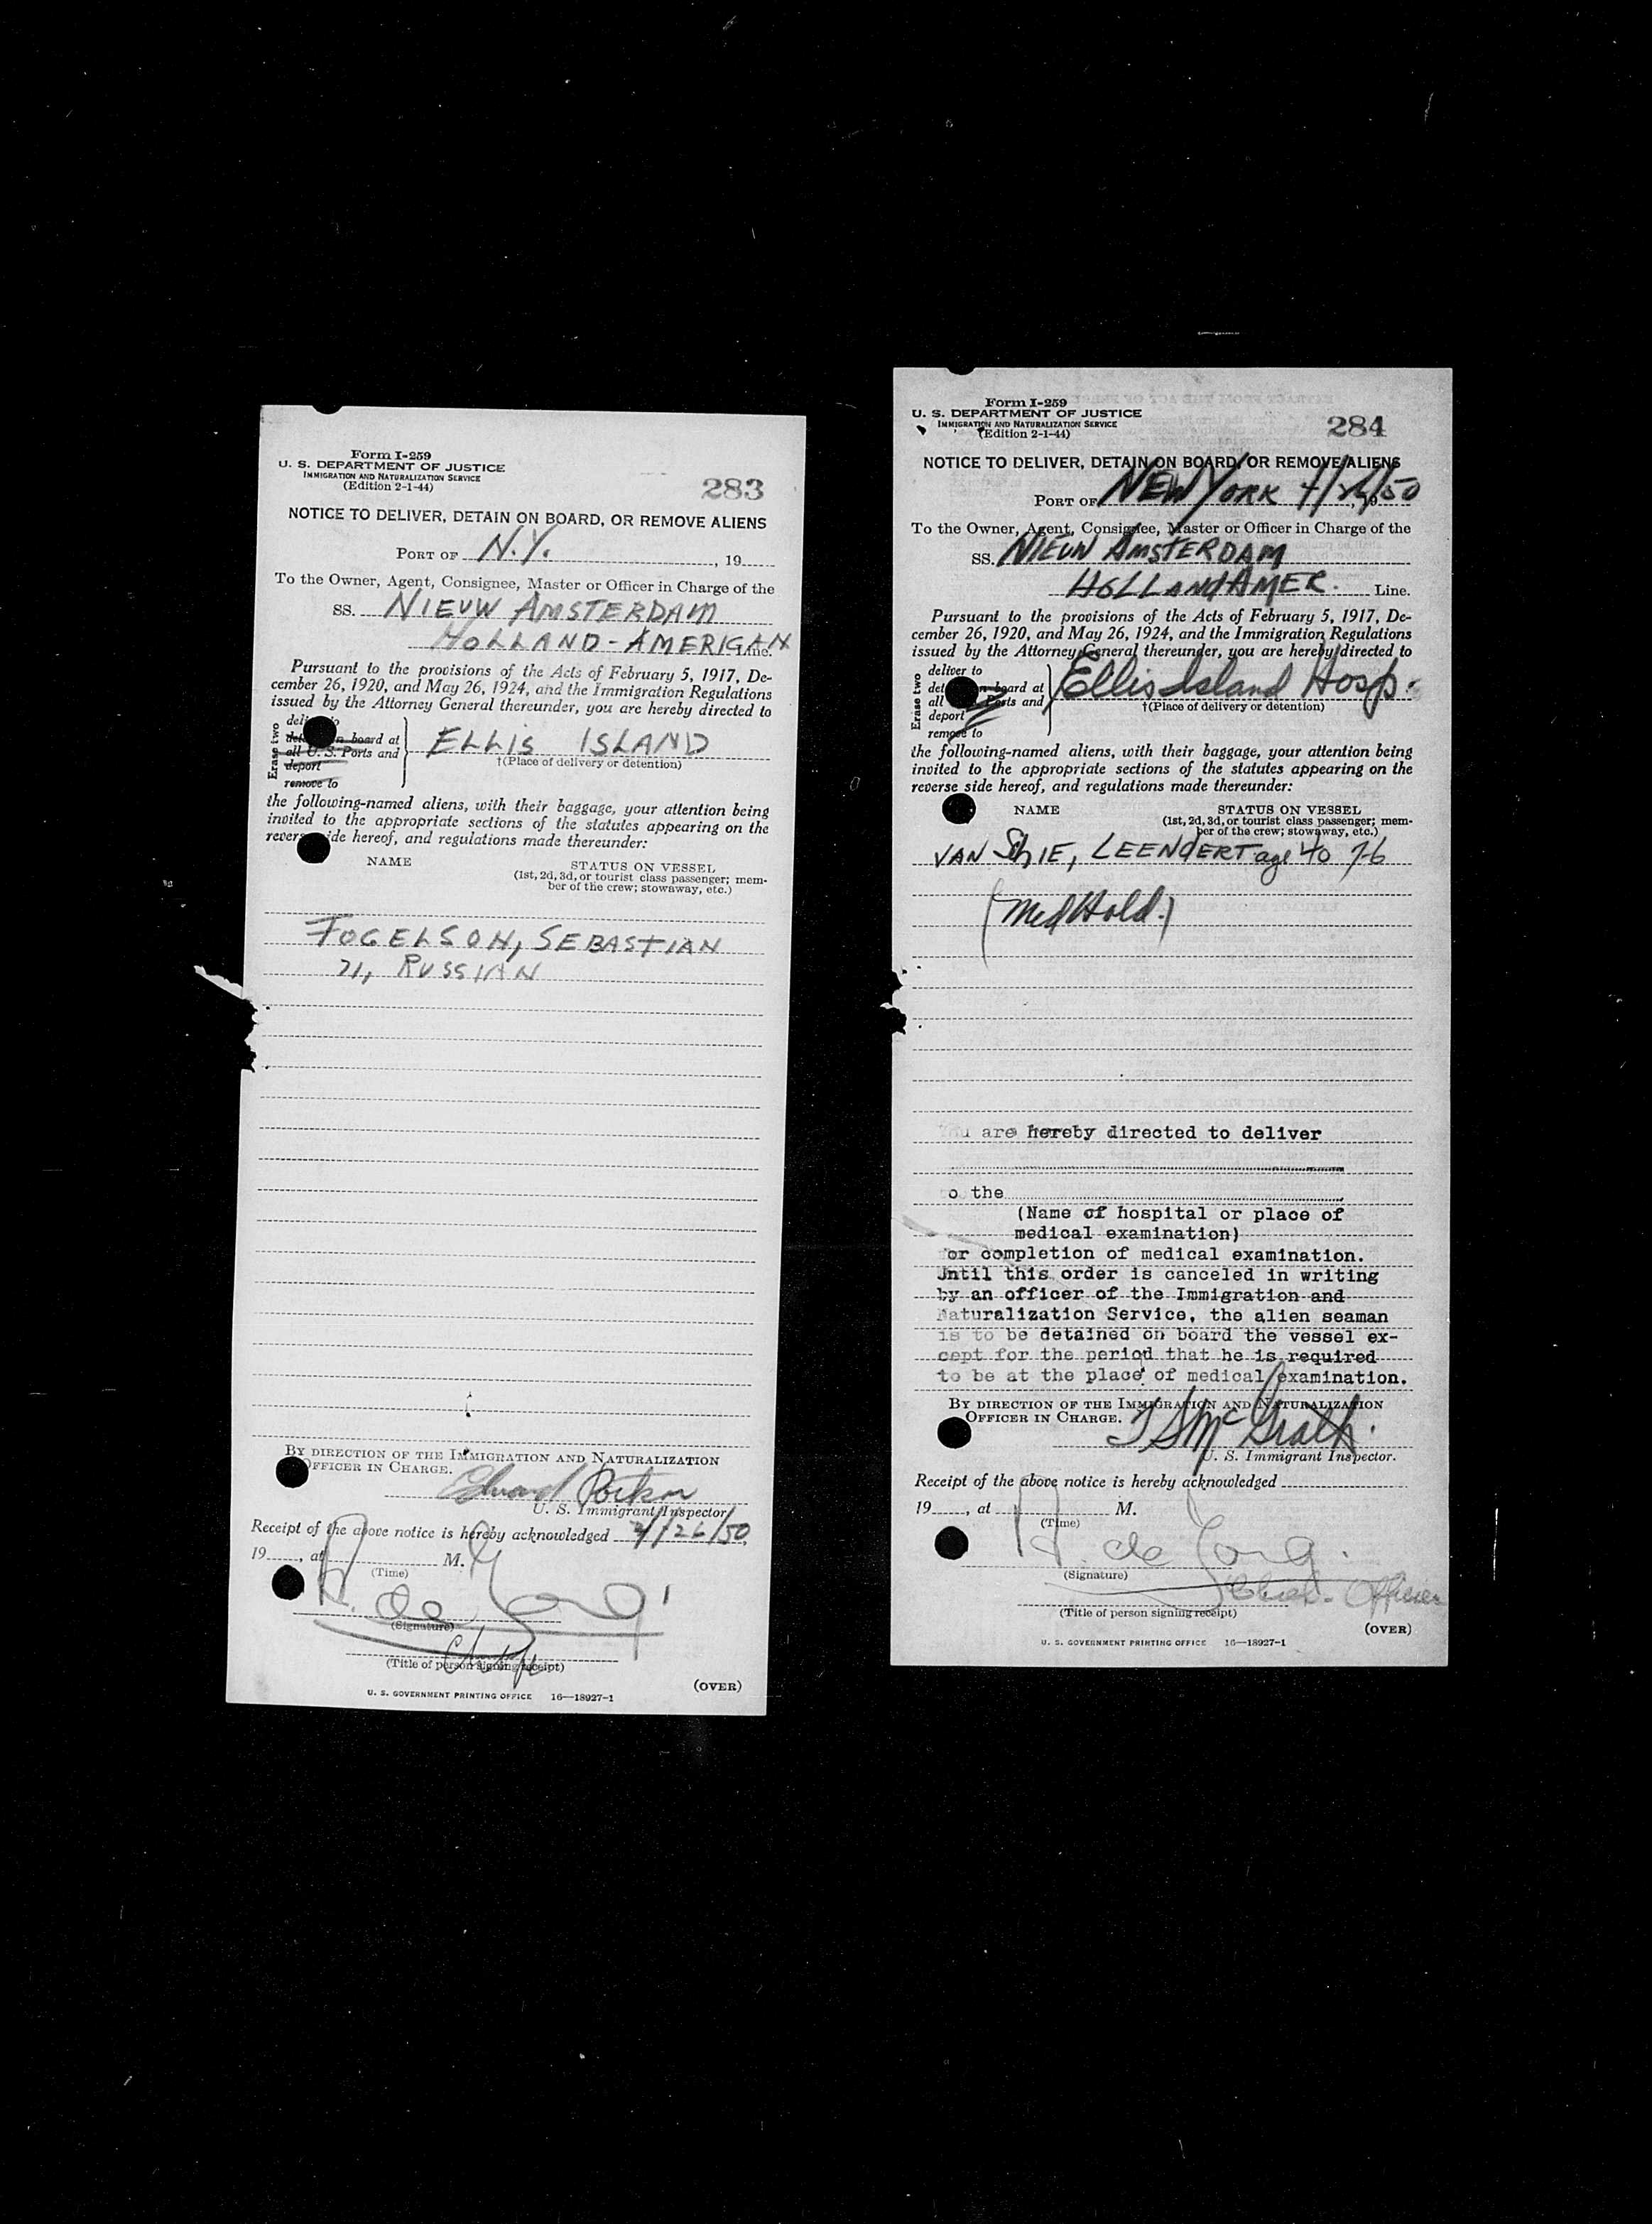 Form I-259
U. S. DEPARTMENT OF JUSTICE
IMMIGRATION AND NATURALIZATION SERVICE
(Edition 2-1-44)
283
NOTICE TO DELIVER, DETAIN ON BOARD, OR REMOVE ALIENS
PORT OF N.Y. , 19
To the Owner, Agent, Consignee, Master or Officer in Charge of the
SS. NIEUW AMSTERDAM
HOLLAND-AMERICAN Line.
Pursuant to the provisions of the Acts of February 5, 1917, De-
cember 26, 1920, and May 26, 1924, and the Immigration Regulations
issued by the Attorney General thereunder, you are hereby directed to
Erase two
n board at
all U. S. Ports and
deport
remove to
ELLIS ISLAND
†(Place of delivery or detention)
the following-named aliens, with their baggage, your attention being
invited to the appropriate sections of the statutes appearing on the
reverse side hereof, and regulations made thereunder:
NAME
STATUS ON VESSEL
(1st, 2d, 3d, or tourist class passenger; mem-
ber of the crew; stowaway, etc.)
FOGELSON, SEBASTIAN
71, RUSSIAN
BY DIRECTION OF THE IMMIGRATION AND NATURALIZATION
OFFICER IN CHARGE.
Edward
U. S. Immigrant Inspector
Receipt of the above notice is hereby acknowledged /26/50
19 , at M.
(Time)
H. de Jong
(Signature)
(Title of person signing receipt)
(OVER)
U. S. GOVERNMENT PRINTING OFFICE 16—18927-1
Form I-259
U. S. DEPARTMENT OF JUSTICE
IMMIGRATION AND NATURALIZATION SERVICE
(Edition 2-1-44)
284
NOTICE TO DELIVER, DETAIN ON BOARD, OR REMOVE ALIENS
PORT OF NEW YORK /50
To the Owner, Agent, Consignee, Master or Officer in Charge of the
SS. NIEUW AMSTERDAM
HOLLAND AMER. Line.
Pursuant to the provisions of the Acts of February 5, 1917, De-
cember 26, 1920, and May 26, 1924, and the Immigration Regulations
issued by the Attorney General thereunder, you are hereby directed to
Erase two
deliver to
det n board at
all Ports and
deport
remove to
Ellis Island Hosp.
†(Place of delivery or detention)
the following-named aliens, with their baggage, your attention being
invited to the appropriate sections of the statutes appearing on the
reverse side hereof, and regulations made thereunder:
NAME
STATUS ON VESSEL
(1st, 2d, 3d, or tourist class passenger; mem-
ber of the crew; stowaway, etc.)
VAN SchIE, LEENDERT age 40 7-6
(Med Hold.)
You are hereby directed to deliver
to the
(Name of hospital or place of
medical examination)
for completion of medical examination.
Until this order is canceled in writing
by an officer of the Immigration and
Naturalization Service, the alien seaman
is to be detained on board the vessel ex-
cept for the period that he is required
to be at the place of medical examination.
BY DIRECTION OF THE IMMIGRATION AND NATURALIZATION
OFFICER IN CHARGE.
McGrath
U. S. Immigrant Inspector.
Receipt of the above notice is hereby acknowledged
19 , at M.
(Time)
H. de Jong.
(Signature)
Chief-Officer
(Title of person signing receipt)
(OVER)
U. S. GOVERNMENT PRINTING OFFICE 16—18927-1